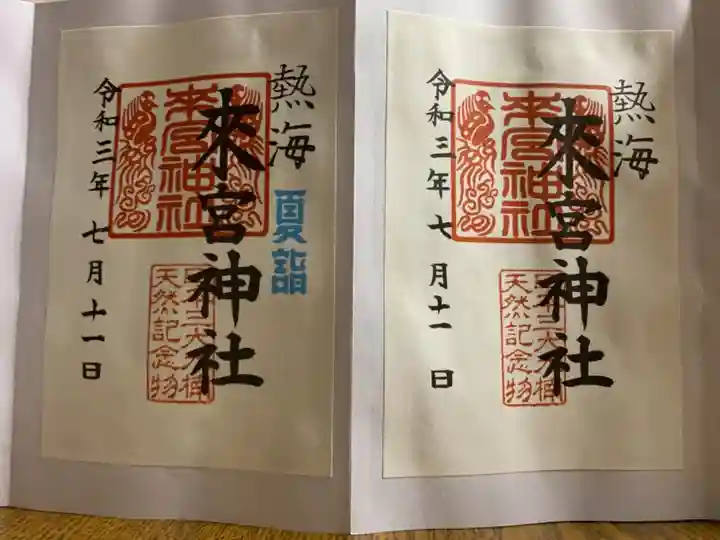 熱海
夏詣
來宮神社
来宮神社
天然記念物
令和三年七月十一日
熱海
來宮神社
来宮神社
天然記念物
令和三年七月十一日